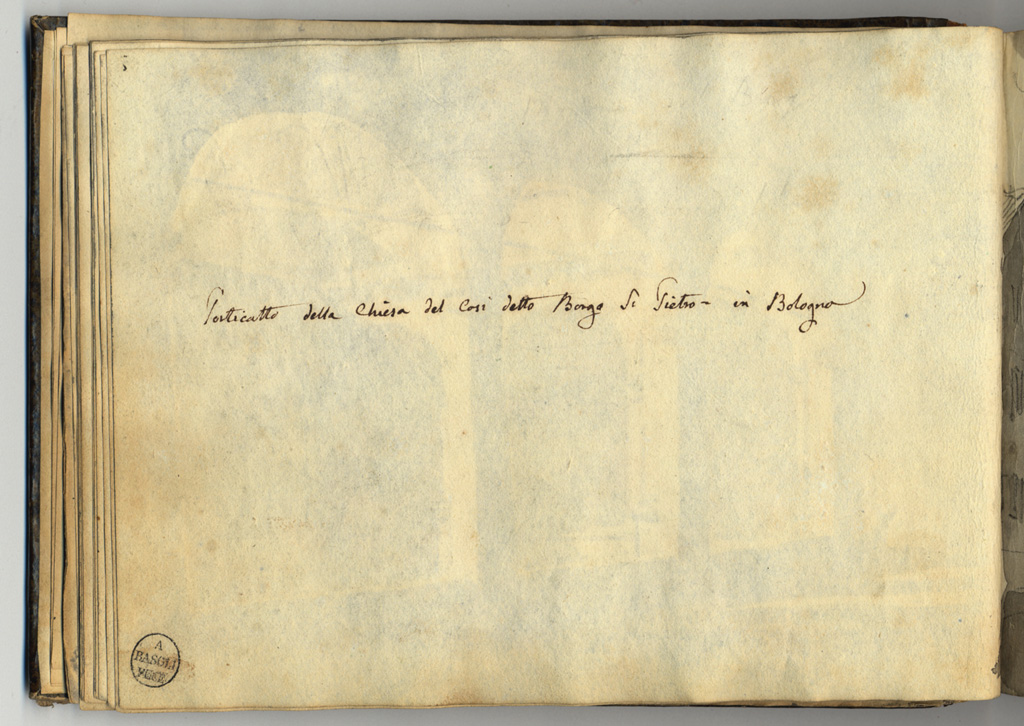 Porticatto della Chiesa del Cosi detto Borgo Si Pietro - in Bologna
A
BASOLI
FECE